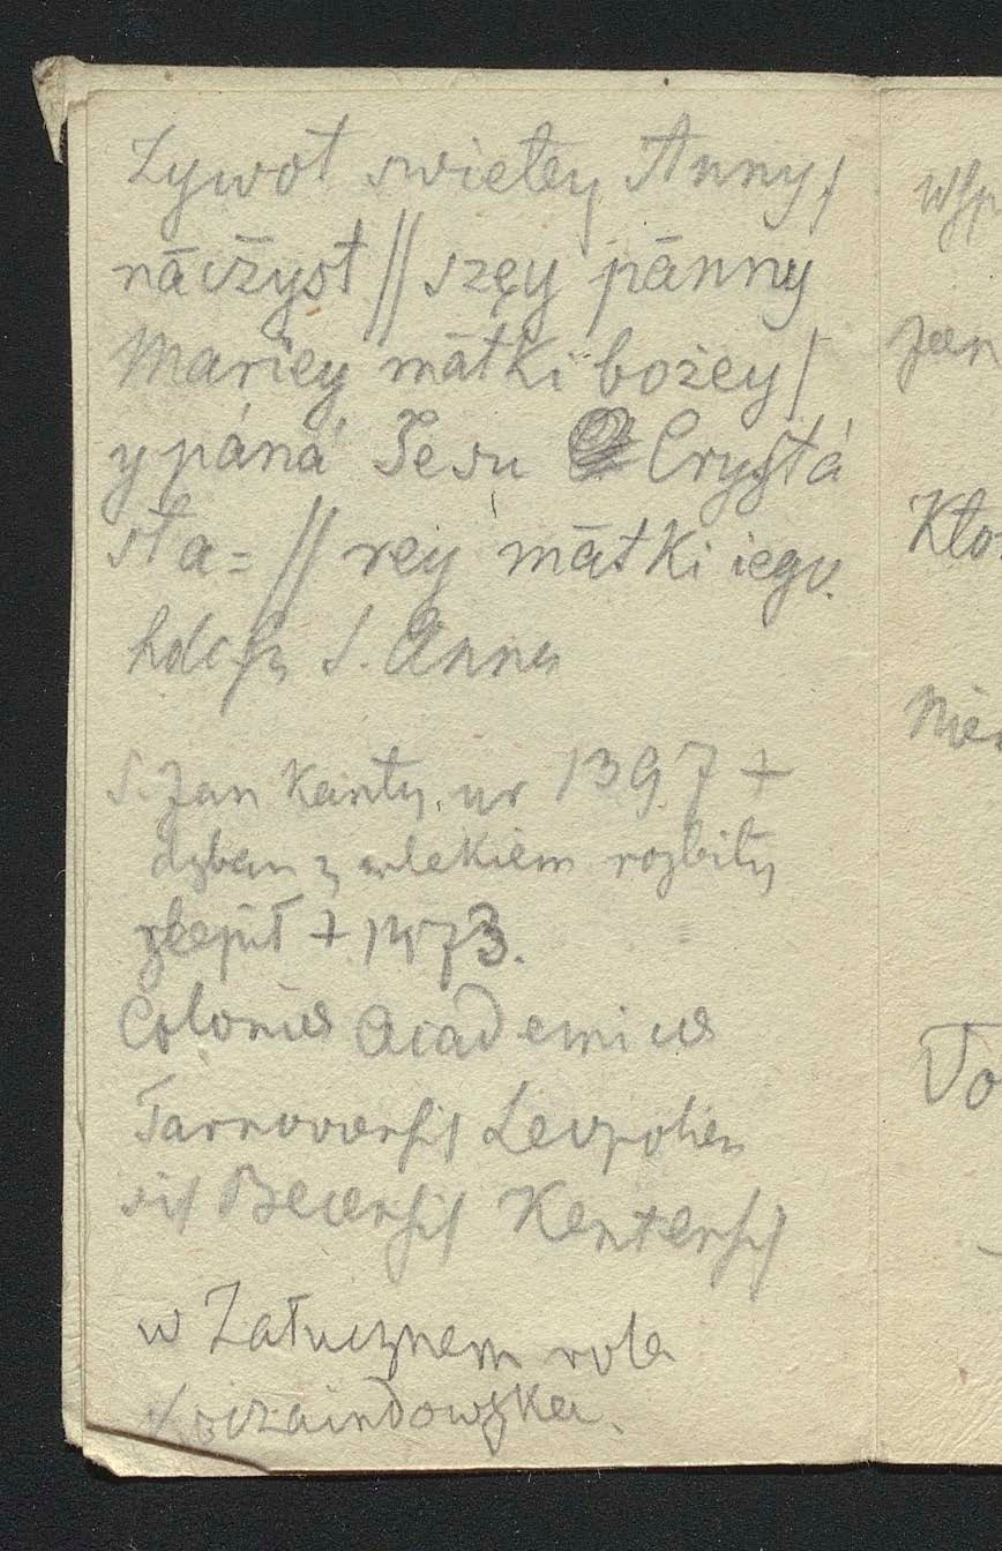 Zywot swietey Anny /
nāczyst // szęy pānny
Mariey mātki bożey /
y páná Jesu Crystá
sta= // rey mātki iego.
S. Anna
S. Jan Kanty ur 1397 +
dzban z mlekiem rozbity
zlepił + 1473.
Coloniae Academicae
Tarnoviensis Leopolien
sis Becensis Kentensis
w Załucznem rola
wsp
Jan
Kto
Nie
To